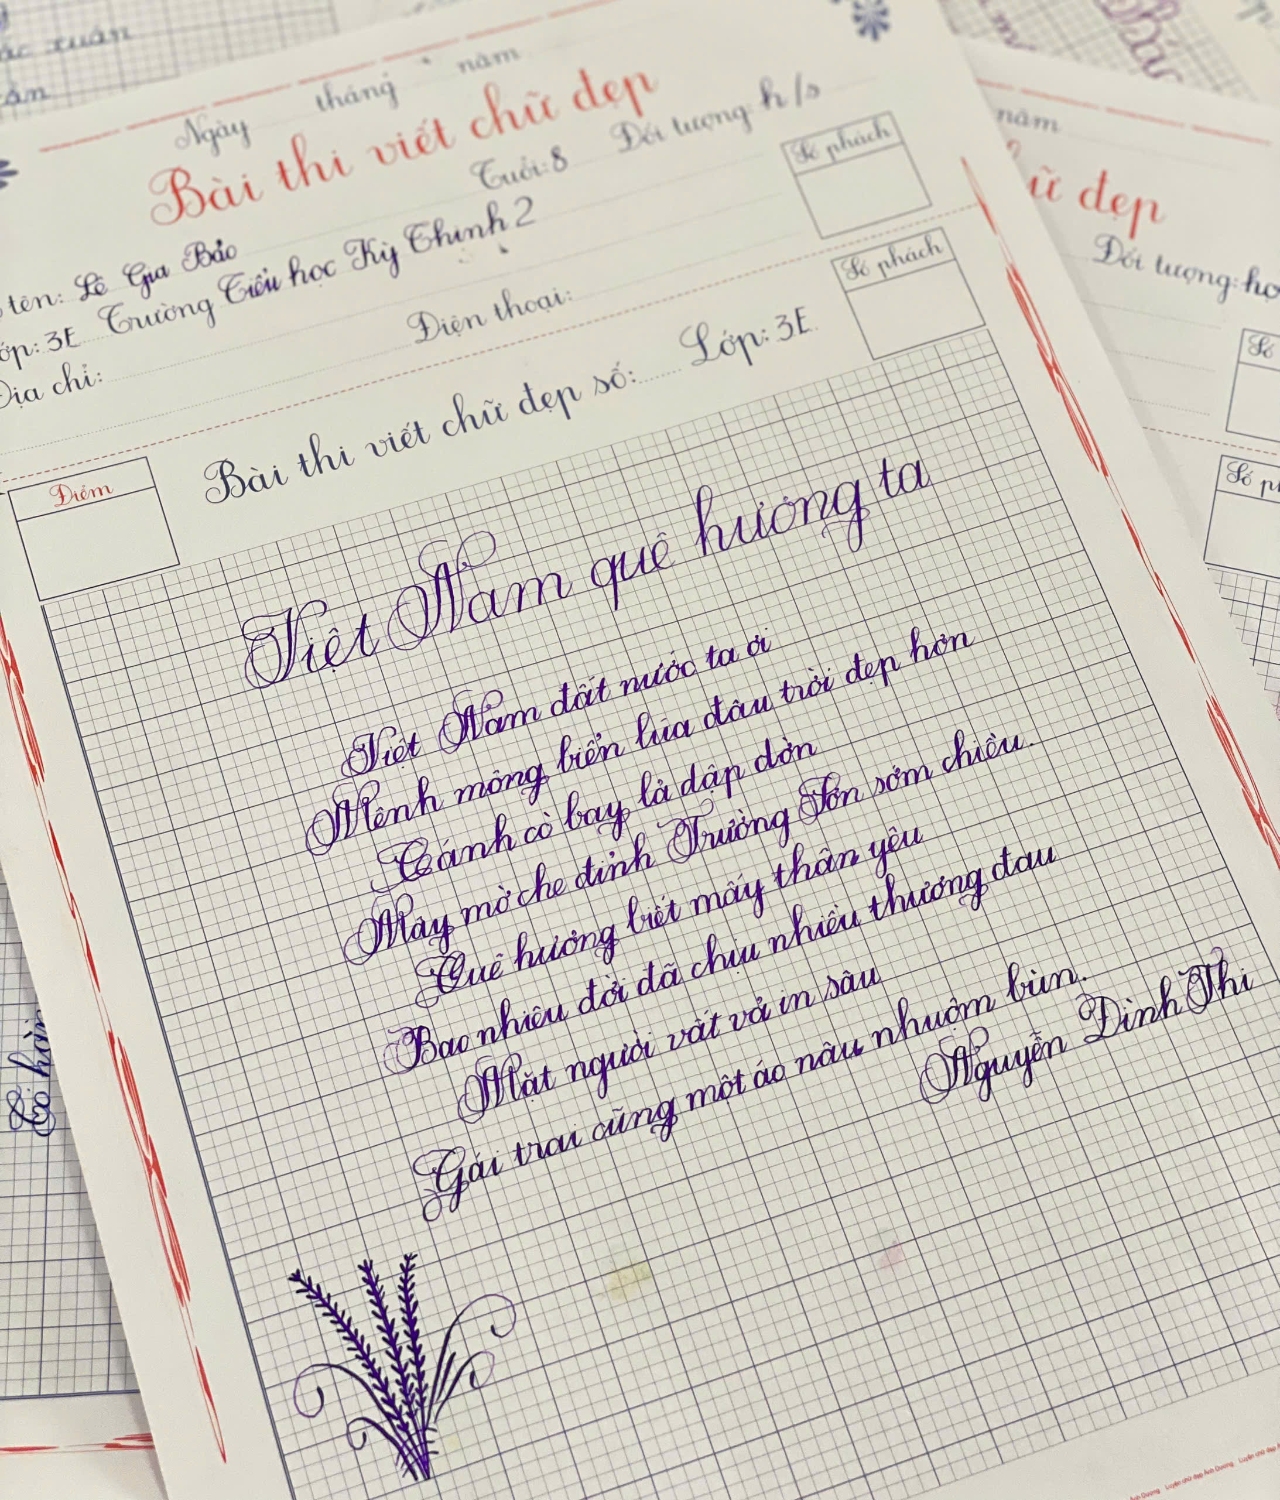 ác xuân
Ngày tháng năm
Bài thi viết chữ đẹp
tên: Lê Gia Bảo Tuổi: 8 Đối tượng: h/s
ớp: 3E Trường Tiểu học Kỳ Thịnh 2
Địa chỉ: Điện thoại:
Số phách
Số phách
Bài thi viết chữ đẹp số: Lớp: 3E
Điểm
Việt Nam quê hương ta
Việt Nam đất nước ta ơi
Mênh mông biển lúa đâu trời đẹp hơn
Cánh cò bay lả dập dờn
Mây mờ che đỉnh Trường Sơn sớm chiều.
Quê hương biết mấy thân yêu
Bao nhiêu đời đã chịu nhiều thương đau
Mặt người vất vả in sâu
Gái trai cũng một áo nâu nhuộm bùn.
Nguyễn Đình Thi
năm
ữ đẹp
Đối tượng: họ
Số
Số ph
Luyện chữ đẹp Ánh Dương